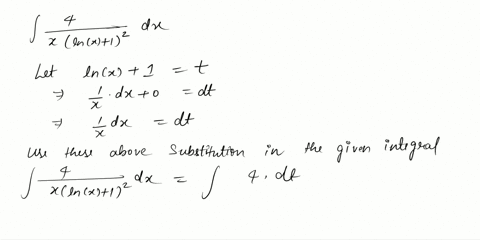 ∫ 4 / x (ln(x)+1)² dx
Let ln(x) + 1 = t
⇒ 1/x · dx + 0 = dt
⇒ 1/x dx = dt
use these above substitution in the given integral
∫ 4 / x(ln(x)+1)² dx = ∫ 4 · dt